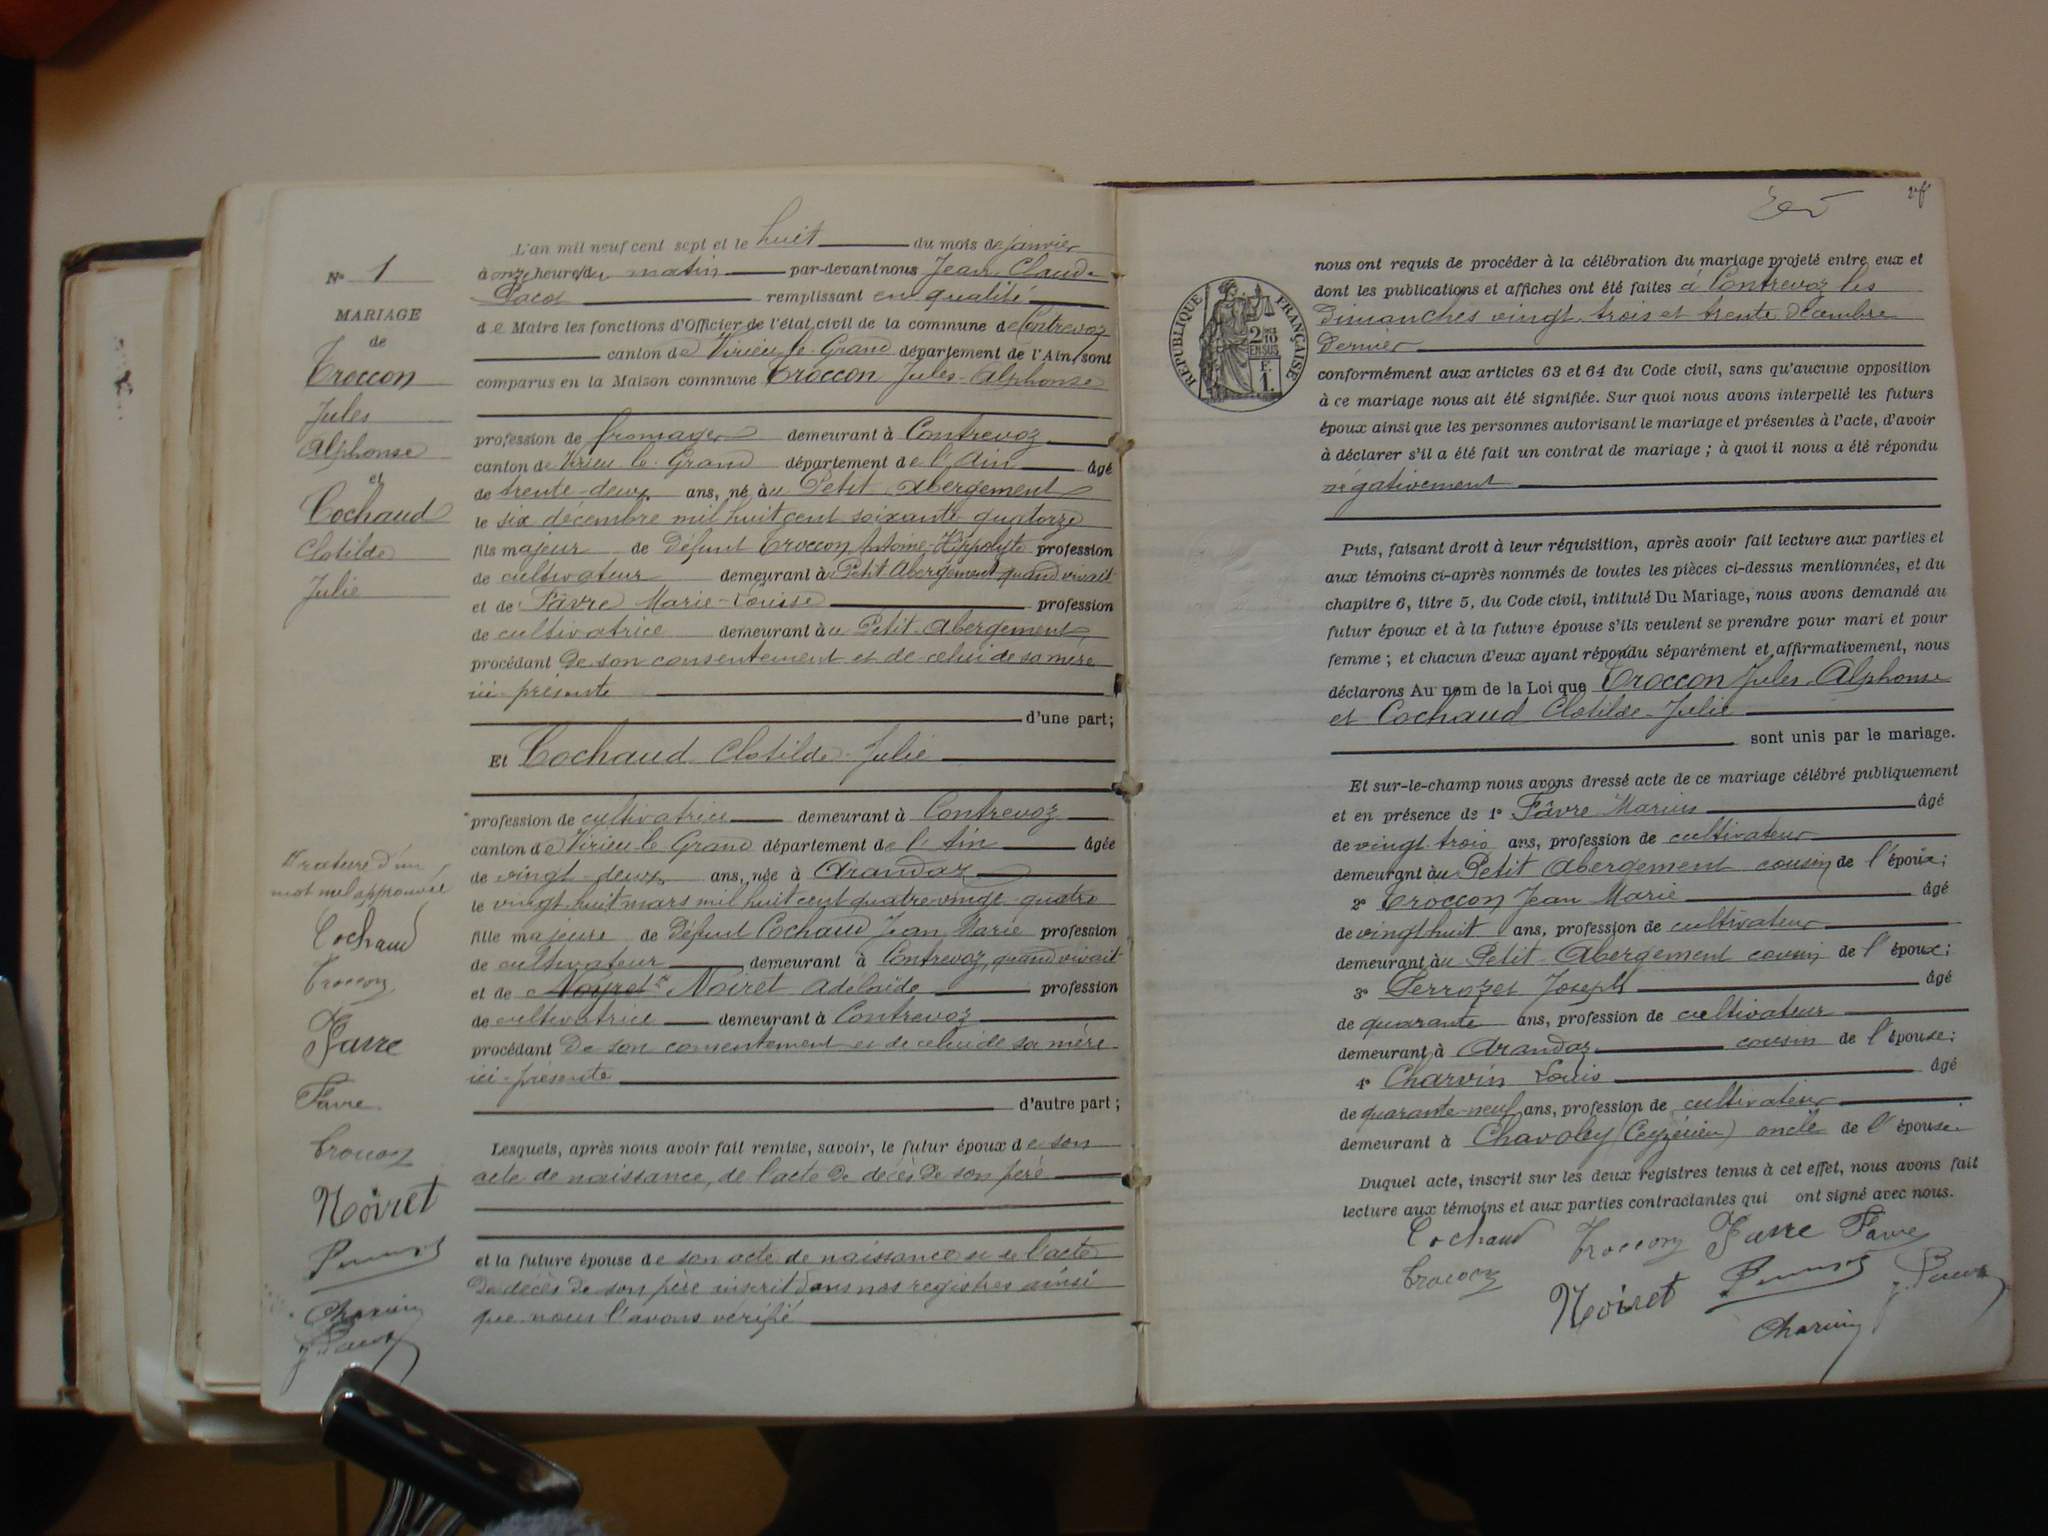 N° 1
MARIAGE
de
Troccon
Jules
Alphonse
et
Cochaud
Clotilde
Julie
Rature d'un
mot nul approuvée
Cochaud
Troccon
Favre
Favre
Troccon
Noiret
Charvin
L'an mil neuf cent sept et le huit du mois de janvier
à onze heures du matin par-devant nous Jean Claude
Pacoz remplissant en qualité
de Maire les fonctions d'Officier de l'état civil de la commune de Contrevoz
canton de Virieu-le-Grand département de l'Ain, sont
comparus en la Maison commune Troccon Jules-Alphonse
profession de fromager demeurant à Contrevoz
canton de Virieu le Grand département de l'Ain âgé
de trente-deux ans, né au Petit Abergement
le six décembre mil huit cent soixante quatorze
fils majeur de Défunt Troccon Antoine-Hippolyte profession
de cultivateur demeurant au Petit Abergement quand vivait
et de Fâvre Marie-Louise profession
de cultivatrice demeurant au Petit-Abergement
procédant De son consentement et de celui de sa mère
ici présente
d'une part;
Et Cochaud Clotilde Julie
profession de cultivatrice demeurant à Contrevoz
canton de Virieu-le-Grand département de l'Ain âgée
de vingt-deux ans, née à Arandaz
le vingt huit mars mil huit cent quatre vingt quatre
fille majeure de Défunt Cochaud Jean Marie profession
de cultivateur demeurant à Contrevoz, quand vivait
et de Noyret Noiret Adelaïde profession
de cultivatrice demeurant à Contrevoz
procédant De son consentement et de celui de sa mère
ici-présente
d'autre part;
Lesquels, après nous avoir fait remise, savoir, le futur époux de son
acte de naissance, de l'acte De décès De son père
et la future épouse de son acte de naissance et de l'acte
De décès De son père inscrit dans nos registres ainsi
que nous l'avons vérifié
RÉPUBLIQUE FRANÇAISE
2/10
EN SUS
F.
1.
nous ont requis de procéder à la célébration du mariage projeté entre eux et
dont les publications et affiches ont été faites à Contrevoz les
Dimanches vingt-trois et trente Décembre
Dernier
conformément aux articles 63 et 64 du Code civil, sans qu'aucune opposition
à ce mariage nous ait été signifiée. Sur quoi nous avons interpellé les futurs
époux ainsi que les personnes autorisant le mariage et présentes à l'acte, d'avoir
à déclarer s'il a été fait un contrat de mariage; à quoi il nous a été répondu
négativement
Puis, faisant droit à leur réquisition, après avoir fait lecture aux parties et
aux témoins ci-après nommés de toutes les pièces ci-dessus mentionnées, et du
chapitre 6, titre 5, du Code civil, intitulé Du Mariage, nous avons demandé au
futur époux et à la future épouse s'ils veulent se prendre pour mari et pour
femme; et chacun d'eux ayant répondu séparément et affirmativement, nous
déclarons Au nom de la Loi que Troccon Jules Alphonse
et Cochaud Clotilde Julie
sont unis par le mariage.
Et sur-le-champ nous avons dressé acte de ce mariage célébré publiquement
et en présence de 1° Fâvre Marius âgé
de vingt trois ans, profession de cultivateur
demeurant au Petit Abergement cousin de l'époux;
2° Troccon Jean Marie âgé
de vingt huit ans, profession de cultivateur
demeurant au Petit-Abergement cousin de l'époux;
3° Perrozet Joseph âgé
de quarante ans, profession de cultivateur
demeurant à Arandaz cousin de l'épouse;
4° Charvin Louis âgé
de quarante-neuf ans, profession de cultivateur
demeurant à Chavoley (Ceyzérieu) oncle de l'épouse
Duquel acte, inscrit sur les deux registres tenus à cet effet, nous avons fait
lecture aux témoins et aux parties contractantes qui ont signé avec nous.
Cochaud Troccon Favre Favre
Troccon Noiret
Charvin